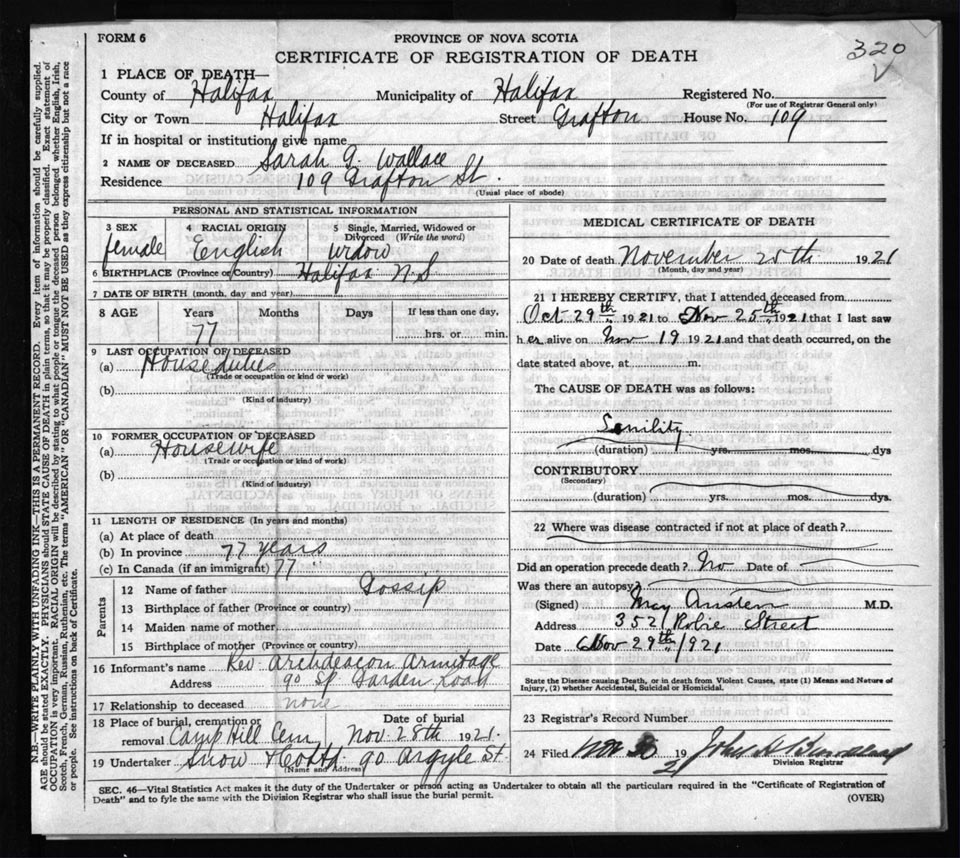 FORM 6
PROVINCE OF NOVA SCOTIA
CERTIFICATE OF REGISTRATION OF DEATH
320
1 PLACE OF DEATH—
County of Halifax Municipality of Halifax Registered No.
(For use of Registrar General only)
City or Town Halifax Street Grafton House No. 109
If in hospital or institution, give name
2 NAME OF DECEASED Sarah G. Wallace
Residence 109 Grafton St.
(Usual place of abode)
PERSONAL AND STATISTICAL INFORMATION
3 SEX 4 RACIAL ORIGIN 5 Single, Married, Widowed or Divorced (Write the word)
female English widow
6 BIRTHPLACE (Province or Country) Halifax N.S
7 DATE OF BIRTH (month, day and year)
8 AGE Years Months Days If less than one day,
77 hrs. or min.
9 LAST OCCUPATION OF DECEASED
(a) House duties
(Trade or occupation or kind or work)
(b)
(Kind of industry)
10 FORMER OCCUPATION OF DECEASED
(a) Housewife
(Trade or occupation or kind of work)
(b)
(Kind of industry)
11 LENGTH OF RESIDENCE (In years and months)
(a) At place of death
(b) In province 77 years
(c) In Canada (if an immigrant) 77
Parents
12 Name of father Gossip
13 Birthplace of father (Province or country)
14 Maiden name of mother
15 Birthplace of mother (Province or country)
16 Informant's name Rev. Archdeacon Armitage
Address 90 Sp Garden Road
17 Relationship to deceased none
18 Place of burial, cremation or removal Camp Hill Cem
Date of burial Nov 28th 1921.
19 Undertaker Snow & 90 Argyle St
(Name and Address)
MEDICAL CERTIFICATE OF DEATH
20 Date of death November 1921
(Month, day and year)
21 I HEREBY CERTIFY, that I attended deceased from
Oct 29th 1921 to Nov 25th 1921 that I last saw
her alive on Nov 19 1921 and that death occurred, on the
date stated above, at m.
The CAUSE OF DEATH was as follows:
Senility
(duration) yrs. mos. dys
CONTRIBUTORY
(Secondary)
(duration) yrs. mos. dys.
22 Where was disease contracted if not at place of death?
Did an operation precede death? No Date of
Was there an autopsy?
(Signed) M.D.
Address 352 Robie Street
Date Nov 29th /921
State the Disease causing Death, or in death from Violent Causes, state (1) Means and Nature of
Injury, (2) whether Accidental, Suicidal or Homicidal.
23 Registrar's Record Number
24 Filed Nov 30 1921
Division Registrar
SEC. 46—Vital Statistics Act makes it the duty of the Undertaker or person acting as Undertaker to obtain all the particulars required in the "Certificate of Registration of
Death" and to fyle the same with the Division Registrar who shall issue the burial permit.
(OVER)
N.B.—WRITE PLAINLY WITH UNFADING INK—THIS IS A PERMANENT RECORD. Every item of information should be carefully supplied.
AGE should be stated EXACTLY. PHYSICIANS should STATE CAUSE OF DEATH in plain terms, so that it may be properly classified. Exact statement of
OCCUPATION is very important. RACIAL ORIGIN will be described by stating to what people or tongue the deceased person belonged whether English, Irish,
Scotch, French, German, Russian, Ruthenian, etc. The terms "AMERICAN" OR "CANADIAN" MUST NOT BE USED as they express citizenship but not a race
or people. See instructions on back of Certificate.